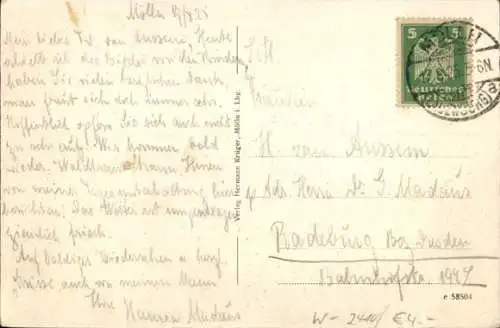 Mölln 19/8 25
Mein liebes Frl van Aussem, Heute
erhielt ich die Bilder von den Kindern
haben Sie vielen herzlichen Dank,
man freut sich doch immer sehr.
Hoffentlich opfern Sie sich auch nicht
zu sehr auf! Wir kommen bald
wieder. Waldmann kann Ihnen
von meiner
Das Wetter ist
ziemlich frisch.
Auf baldiges Wiedersehen u herzl.
Grüsse auch von meinem Mann
Ihre Hanna Madaus
Verlag Hermann Krüger, Mölln i. Lbg.
5 5
Deutsches
Reich
MÖLLN
Fräulein
H van Aussem
Adr. Herrn Dr G Madaus
Radeburg Bez. Dresden
Bahnhofstr. 199
e 58504
W- 2410/ €4.-